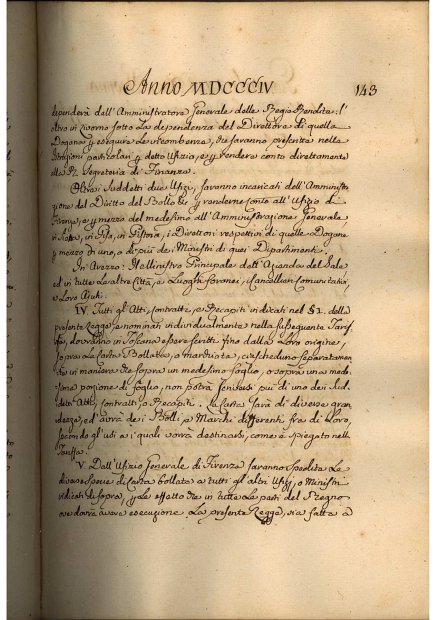 Anno MDCCCIV
143
dependerà dall'Amministratore Generale delle Regie Rendite: l'
altro in Livorno sotto La dependenza del Direttore di quella
Dogana, e eseguirà Le incombenze, che saranno prescritte nelle
Istruzioni particolari p. detto Ufizio, e p. rendere conto direttamente
alla R. Segreteria di Finanze.
Oltre i Suddetti due Ufizi, saranno incaricati dell'Amministra
zione del Diritto del Bollo e renderne conto all'Ufizio di
Firenze, e p. mezzo del medesimo all'Amministrazione Generale
in Siena, in Pisa, in Pistoia, i Direttori respettivi di quelle Dogane
p. mezzo di uno, o di più dei Ministri di quei Dipartimenti.
In Arezzo: Il Ministro Principale dell'Azienda del Sale
ed in tutte Le altre Città, e Luoghi foranei, i Cancellieri Comunitativi
e Loro Ajuti.
IV. Tutti gli Atti, contratti, e Recapiti indicati nel §I. della
presente Legge, e nominati individualmente nella susseguente Tarif-
fa, dovranno in Toscana essere scritti fino dalla Loro origine,
sopra La Carta Bollata, o marchiata, ciascheduno separatamente
in maniera che sopra un medesimo foglio, o sopra una mede-
sima porzione di foglio, non potrà scriversi più di uno dei Sud-
detti Atti, contratti, o Recapiti. La Carta sarà di diversa gran-
dezza, ed avrà dei Bolli, e Marchi differenti fra di Loro,
secondo gli usi ai quali dovrà destinarsi, come è spiegato nella
Tariffa.
V. Dall'Ufizio Generale di Firenze saranno spedite Le
diverse specie di Carta bollata a tutti gli altri Ufizj, o Ministri
indicati di sopra, p. Le effetto che in tutte Le parti del Regno
ove dovrà avere esecuzione La presente Legge, sia fatta a